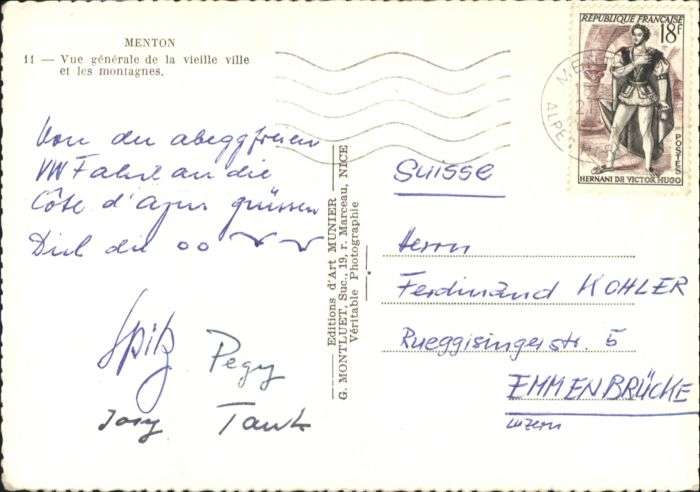 MENTON
11 — Vue générale de la vieille ville
et les montagnes.
Von der abeggfreien
VW Fahrt an die
Côte d'Azur grüssen
Dich die oo
Spitz Pegy
Josy Tank
Editions d'Art MUNIER
G. MONTLUET, Suc., 19, r. Marceau, NICE
Véritable Photographie
REPUBLIQUE FRANÇAISE
18F
POSTES
HERNANI DE VICTOR HUGO
ME
ALPE
Suisse
Herrn
Ferdinand KOHLER
Rueggisingerstr. 5
EMMENBRÜCKE
Luzern